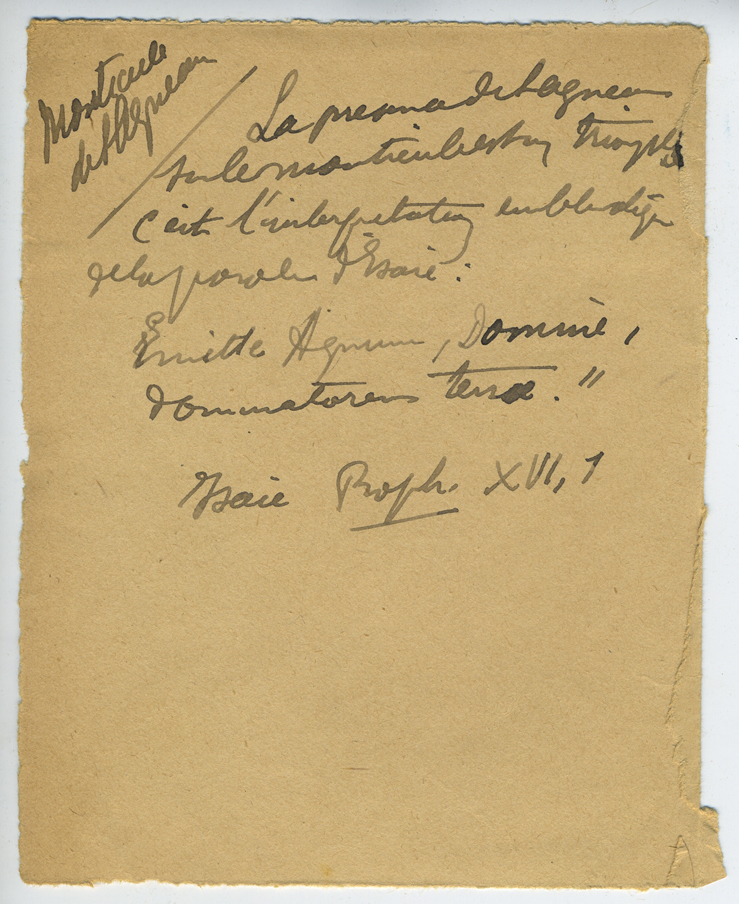 Monticule
de l'Agneau
La presence de l'agneau
sur le monticule est un triomphe
c'est l'interpretation
de la parole d'Esaie :
Emitte Agnum, Domine,
dominatorem terrae."
Isaie Proph. XVI, 1